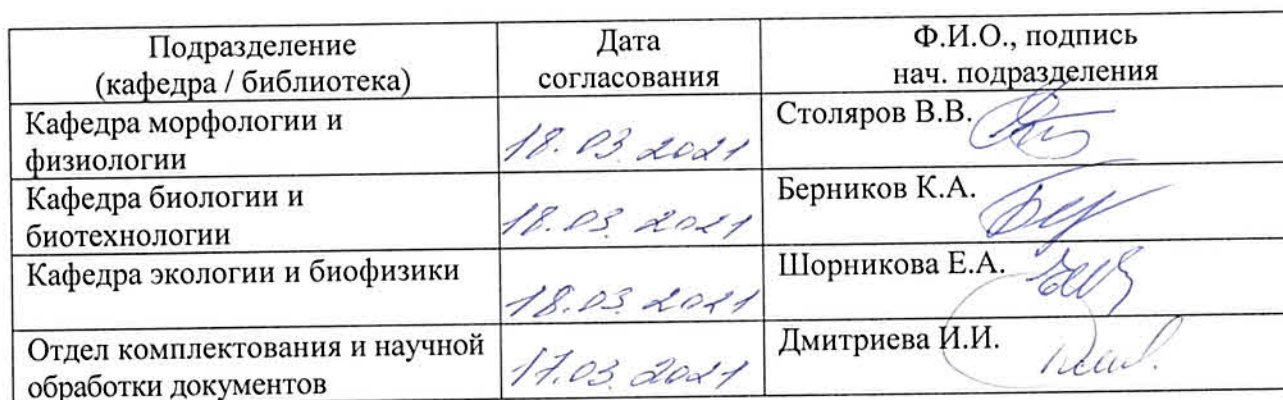 Подразделение
(кафедра / библиотека)
Дата
согласования
Ф.И.О., подпись
нач. подразделения
Кафедра морфологии и
физиологии
18.03.2021
Столяров В.В.
Кафедра биологии и
биотехнологии
18.03.2021
Берников К.А.
Кафедра экологии и биофизики
18.03.2021
Шорникова Е.А.
Отдел комплектования и научной
обработки документов
17.03.2021
Дмитриева И.И.